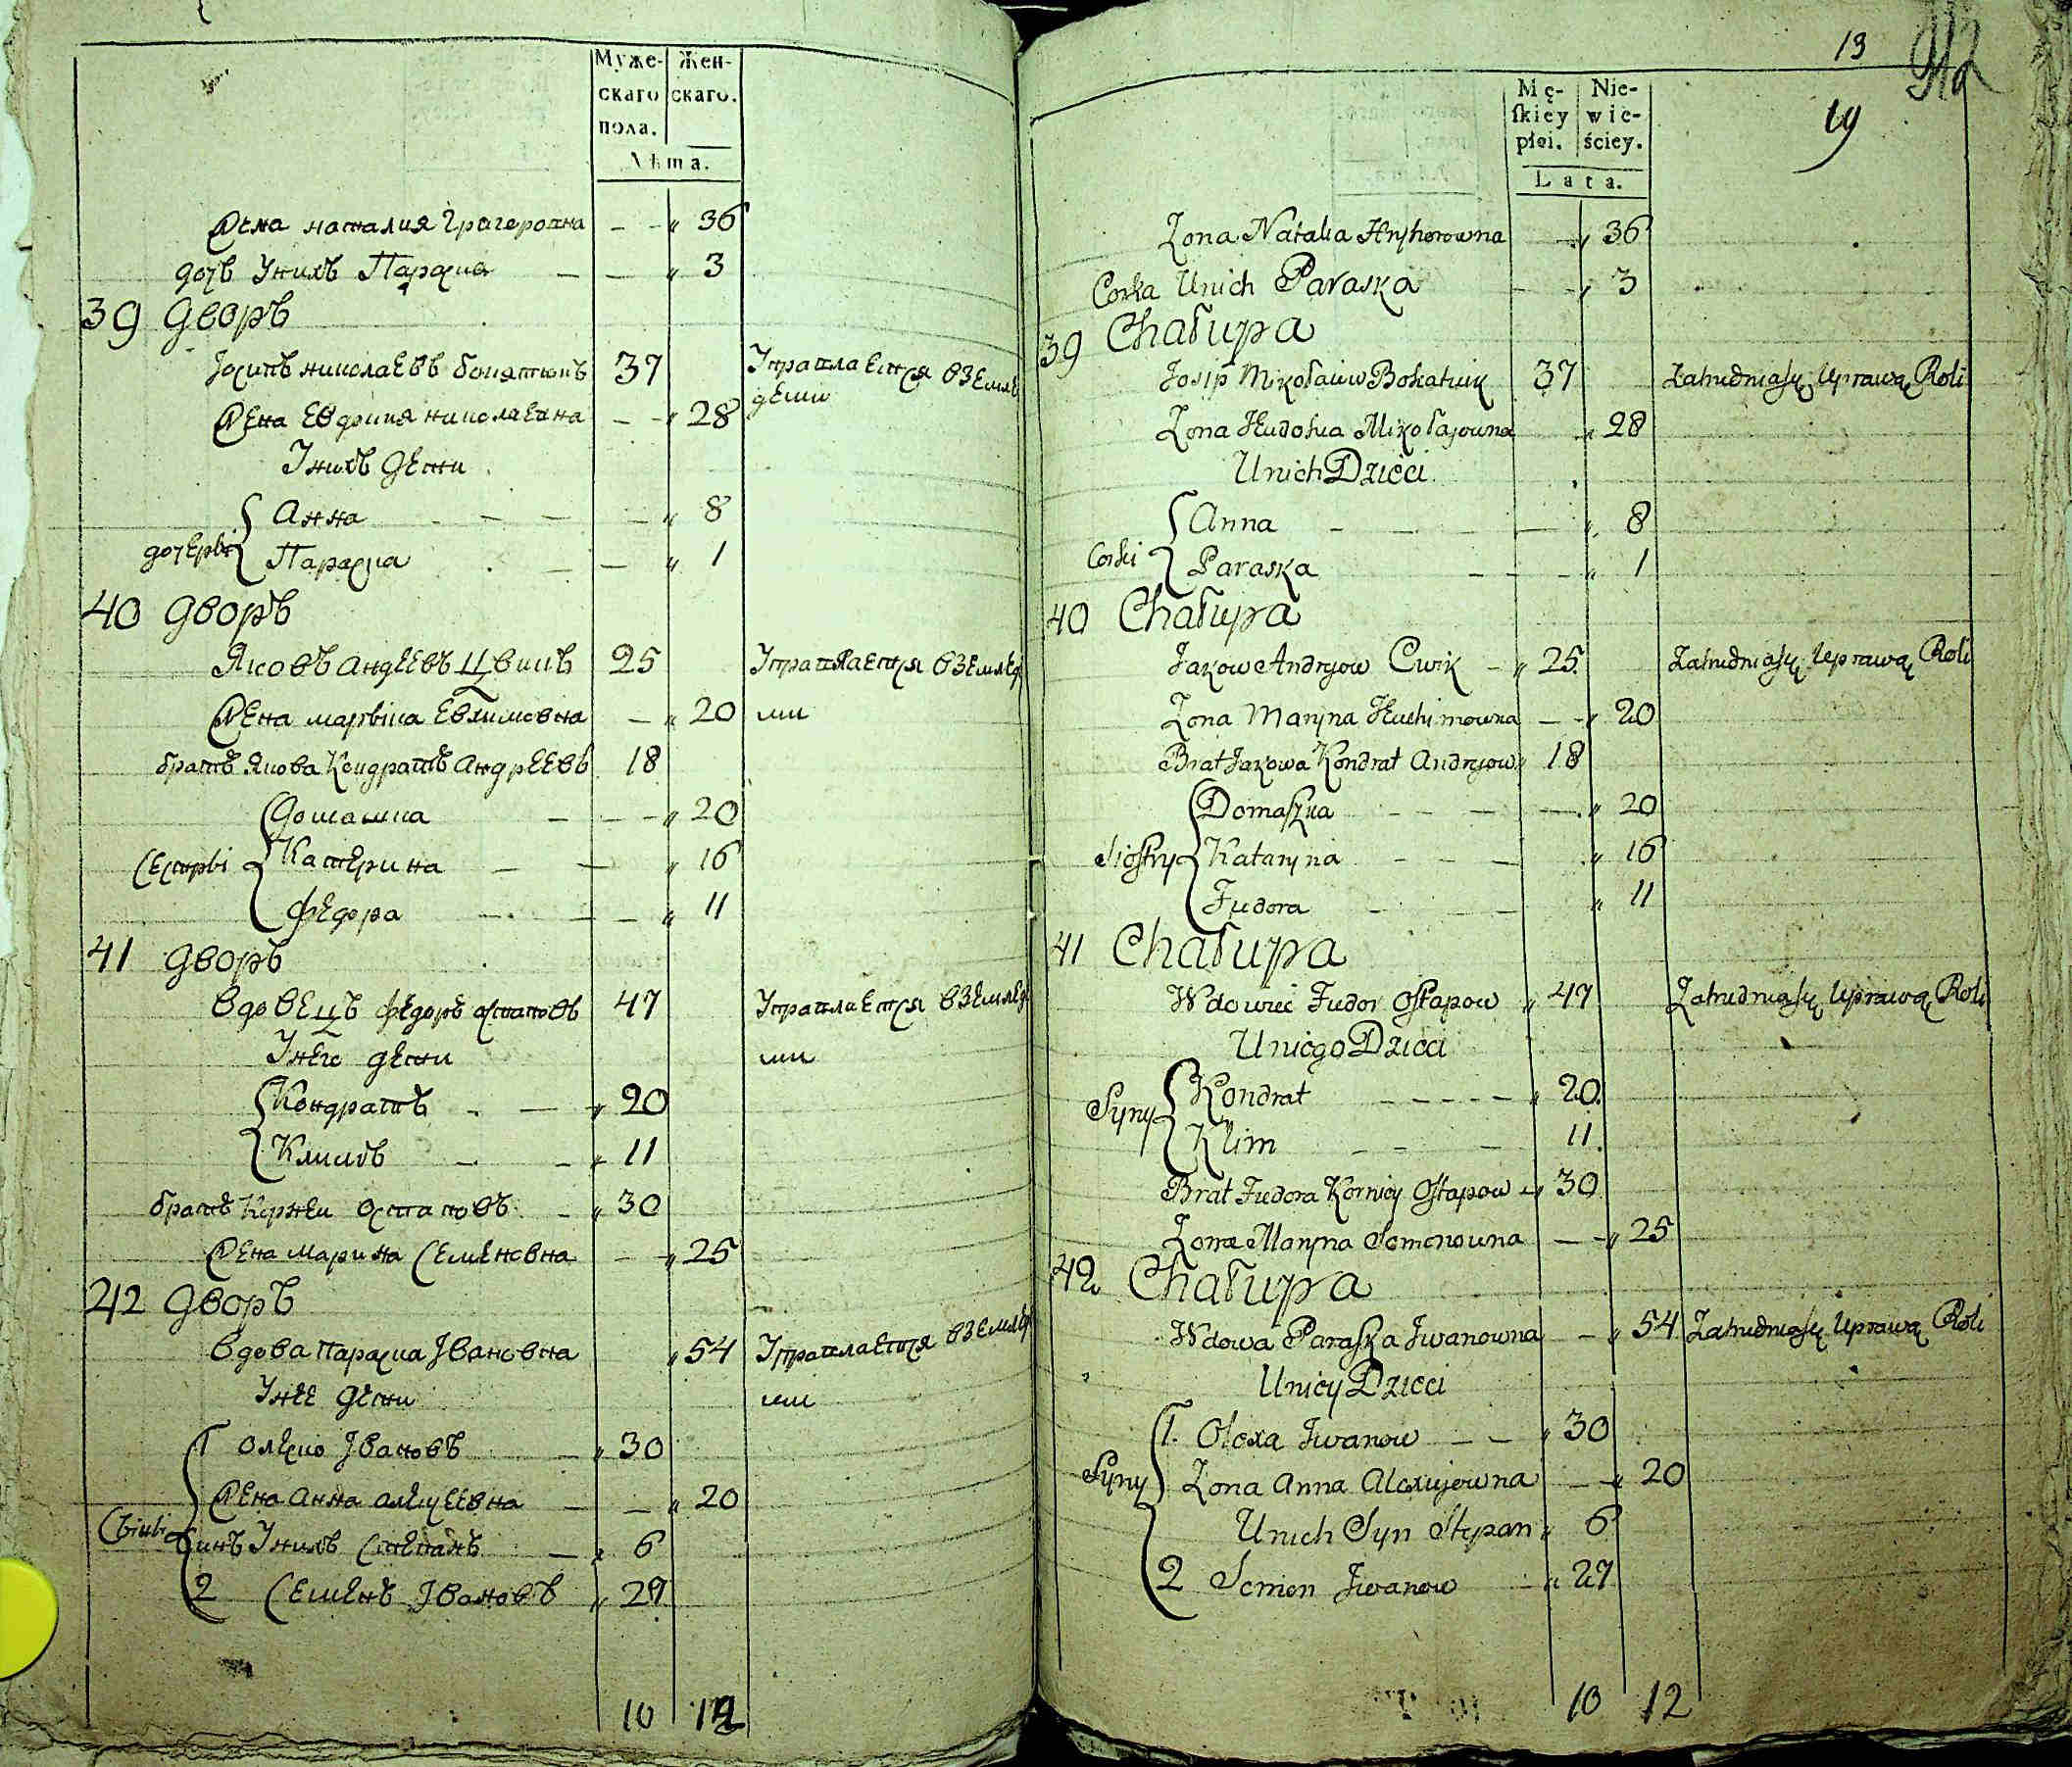 Муже-
скаго
пола.
Жен-
скаго.
Лѣта.
Жена наталия Григеровна — — „ 36
дочь Унихъ Параска — — „ 3
39 дворъ
Іосипъ николаевъ бокатюкъ 37 Упражняется вземле
делии
Жена Евдокия николаевна — — „ 28
Унихъ дети
Анна — — — — „ 8
дочерьі
Параска — — „ 1
40 дворъ
Яковъ андреевъ Цвикъ 25 Упражняется вземлед
лии
Жена марьіна Евхимовна — „ 20
братъ Якова Кондратъ андреевъ 18
домашка — — — „ 20
Сестрьі Катерина — — „ 16
федора — — — „ 11
41 дворъ
вдовецъ федоръ остаповъ 47 Упражняется вземлед
лии
Унего дети
Кондратъ — — „ 20
Климъ — — „ 11
братъ Корнеи остаповъ — „ 30
Жена марина Семеновна — — „ 25
42 дворъ
вдова параска Івановна „ 54 Упражняется вземлед
лии
Унее дети
1 олексо Івановъ — „ 30
Жена анна алексеевна — — „ 20
Сьіньі
синъ Унихъ Степанъ — „ 6
2 Семенъ Івановъ „ 27
10 12
13
19
Mę-
skiey
płci.
Nie-
wie-
ściey.
Lata.
Zona Natalia Hryhorowna — „ 36
Corka Unich Paraska — — „ 3
39 Chałupa
Josip Mikołaiow Bokatiuk 37 Zatrudniasię Uprawą Roli
Zona Hudokia Mikołajowna „ 28
Unich Dzieci
Anna — — „ 8
Corki
Paraska — — — „ 1
40 Chałupa
Jakow Andryow Cwik — „ 25 Zatrudniasię Uprawą Roli
Zona Maryna Huchimowna — — „ 20
Brat Jakowa Kondrat Andryow „ 18
Domaszka — — — — „ 20
Siostry Kataryna — — — „ 16
Fudora — — „ 11
41 Chałupa
Wdowiec Fudor Ostapow „ 47 Zatrudniasię Uprawą Roli
Uniego Dzieci
Kondrat — — — — — „ 20
Syny
Klim — — — 11
Brat Fudora Korniey Ostapow — „ 30
Zona Maryna Semenowna — — „ 25
42 Chałupa
Wdowa Paraska Jwanowna — „ 54 Zatrudniasię Uprawą Roli
Unieÿ Dzieci
1. Olexa Jwanow — — „ 30
Syny Zona Anna Alexiejewna — „ 20
Unich Syn Stepan „ 6
2 Semen Jwanow „ 27
10 12